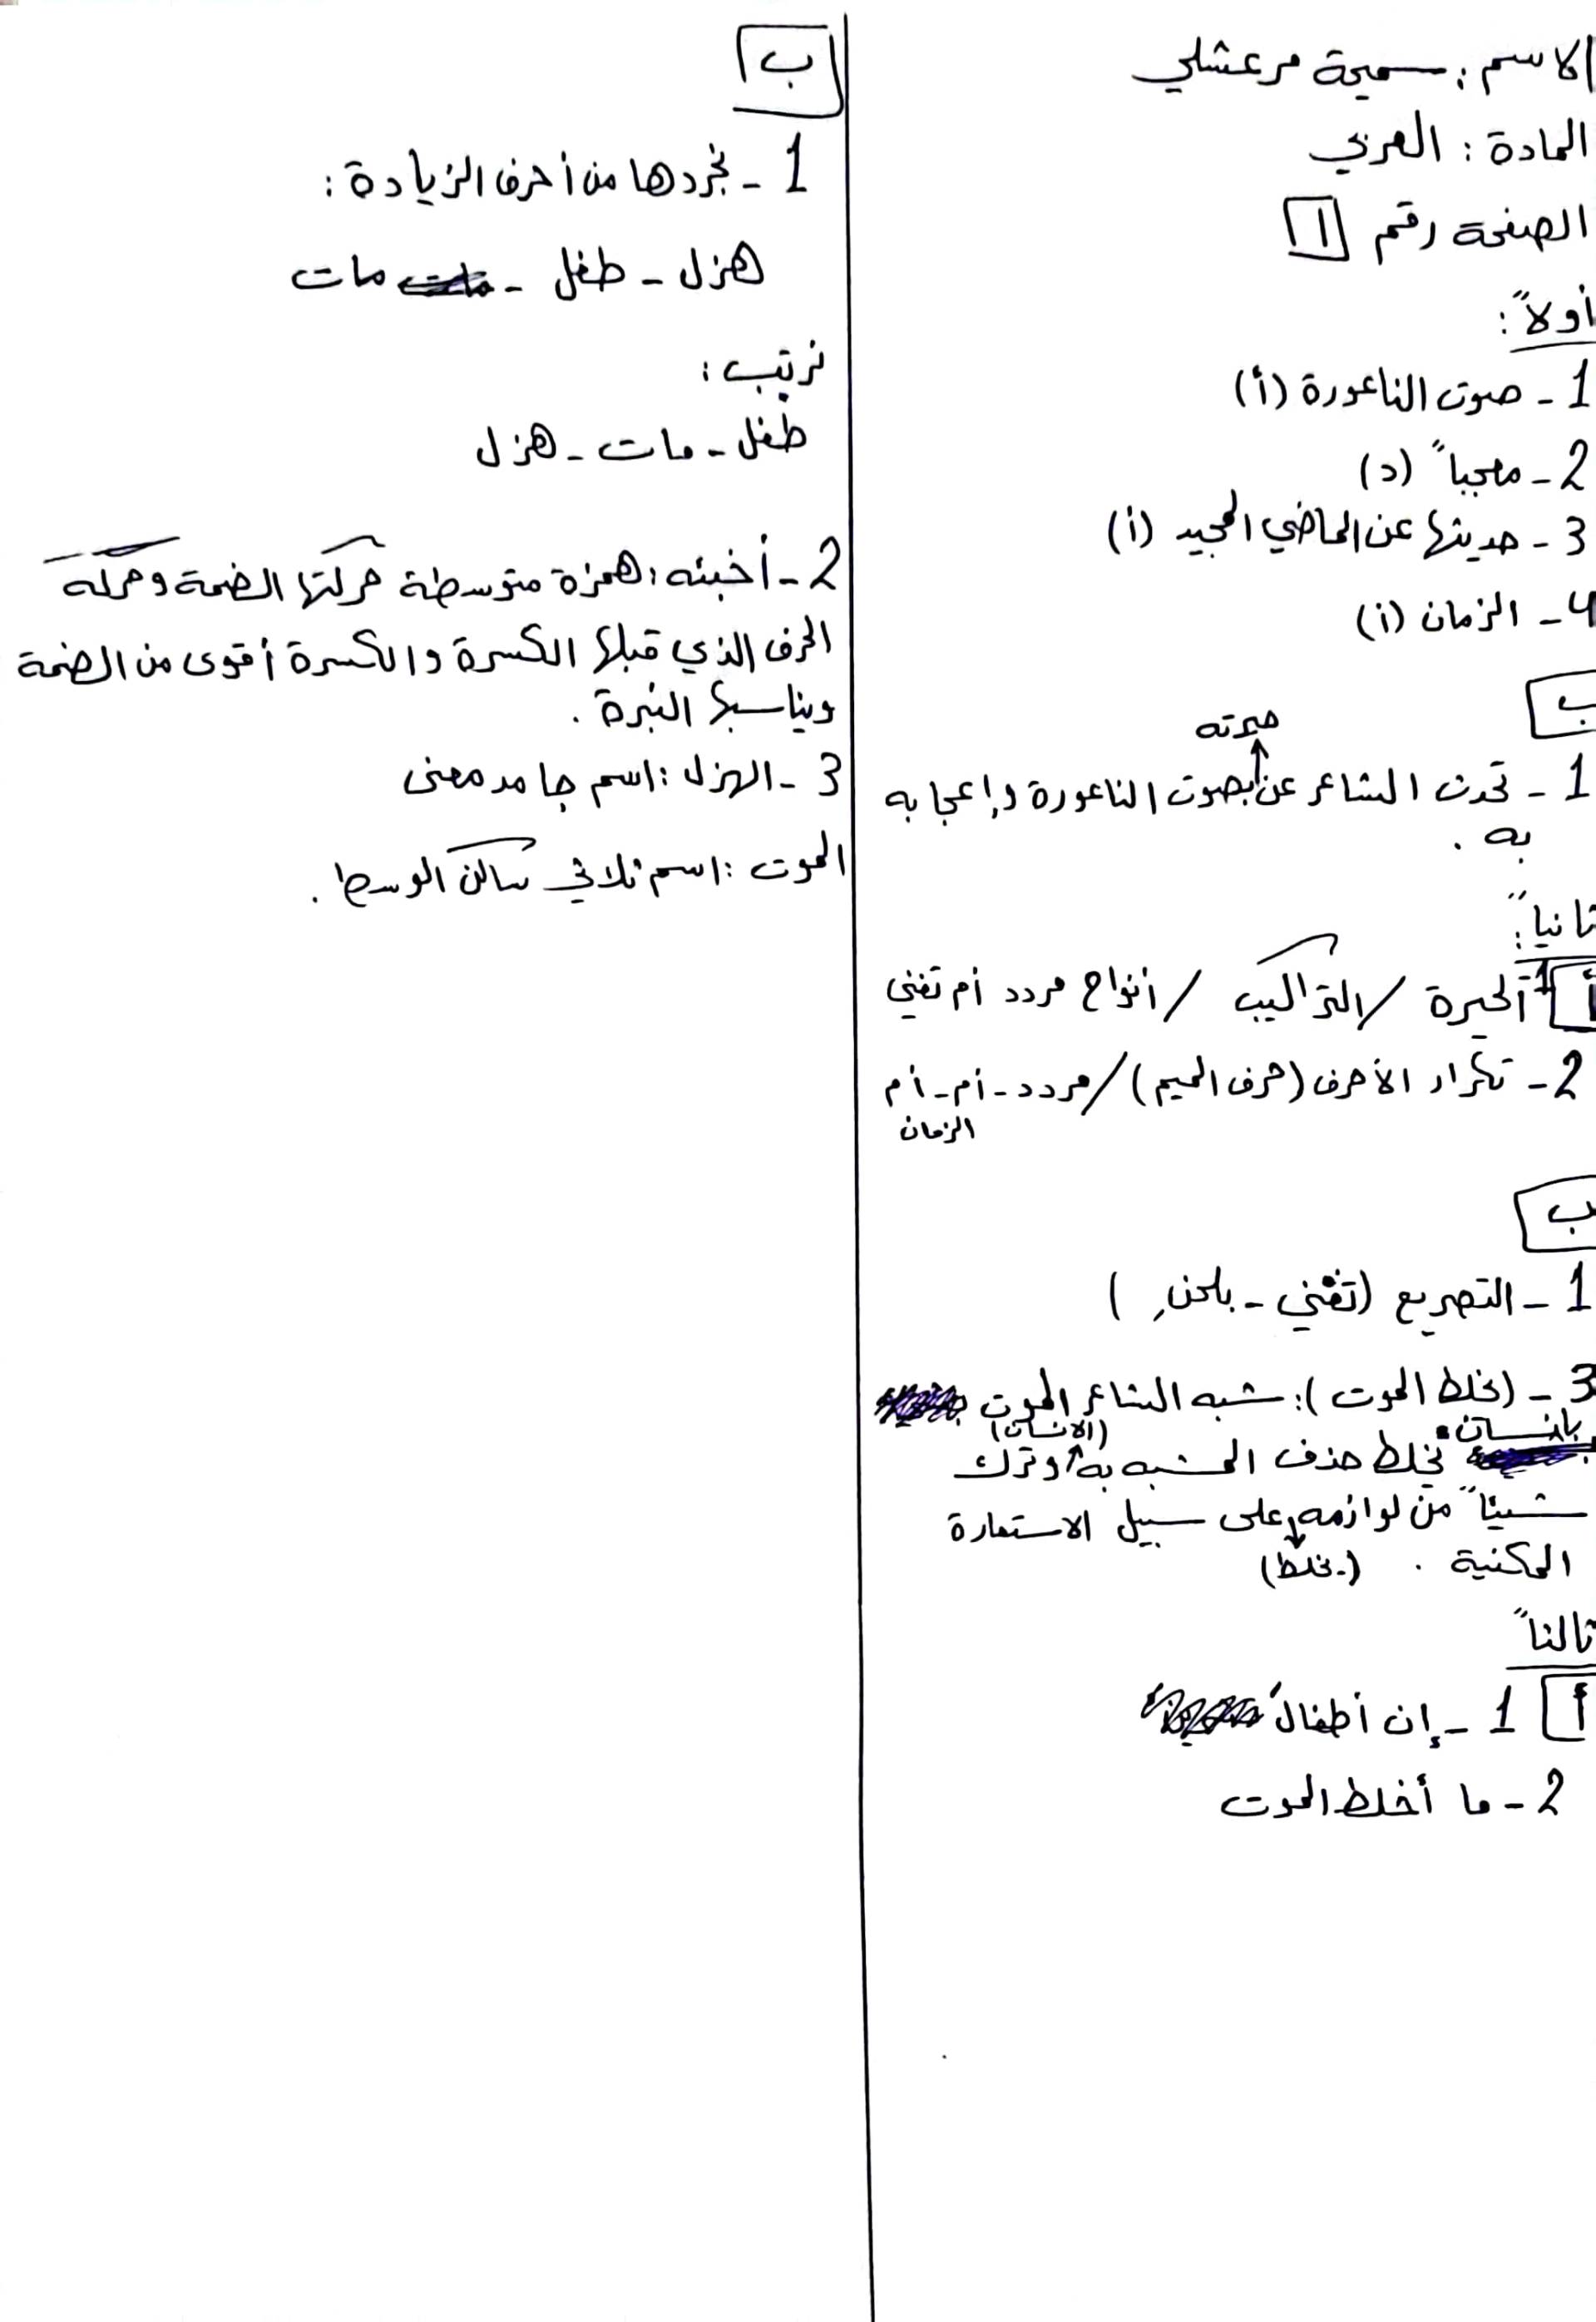 الاسم : سميحة مرعشلي
المادة : العربي
الصفحة رقم 1
أولاً :
1 - صوت الناعورة (أ)
2 - معجباً (د)
3 - حديثها عن الماضي المجيد (أ)
4 - الزمان (أ)
ب
حيرته
1 - تحدث الشاعر عن بصوت الناعورة وإعجابه
به .
ثانياً :
أ 1 الحيرة / التراكيب / أنواح مردد أم تغني
2 - تكرار الأحرف (حرف الميم) / مردد - أم - أم
الزمان
ب
1 - التصريع (تغني - بلحن)
3 - (يخلط الموت) : شبه الشاعر الموت
بانسان (الانسان)
يخلط حذف المشبه به وترك
شيئاً من لوازمه على سبيل الاستعارة
المكنية . (يخلط)
ثالثاً
أ 1 - إن أطفال
2 - ما أخلط الموت
ب
1 - نجردها من أحرف الزيادة :
هزل - طفل - مات
نرتب :
طفل - مات - هزل
2 - أخبئه : همزة متوسطة حركتها الضمة وحركة
الحرف الذي قبلها الكسرة والكسرة أقوى من الضمة
ويناسبها النبرة .
3 - الهزل : اسم جامد معنى
الموت : اسم ثلاثي ساكن الوسط .